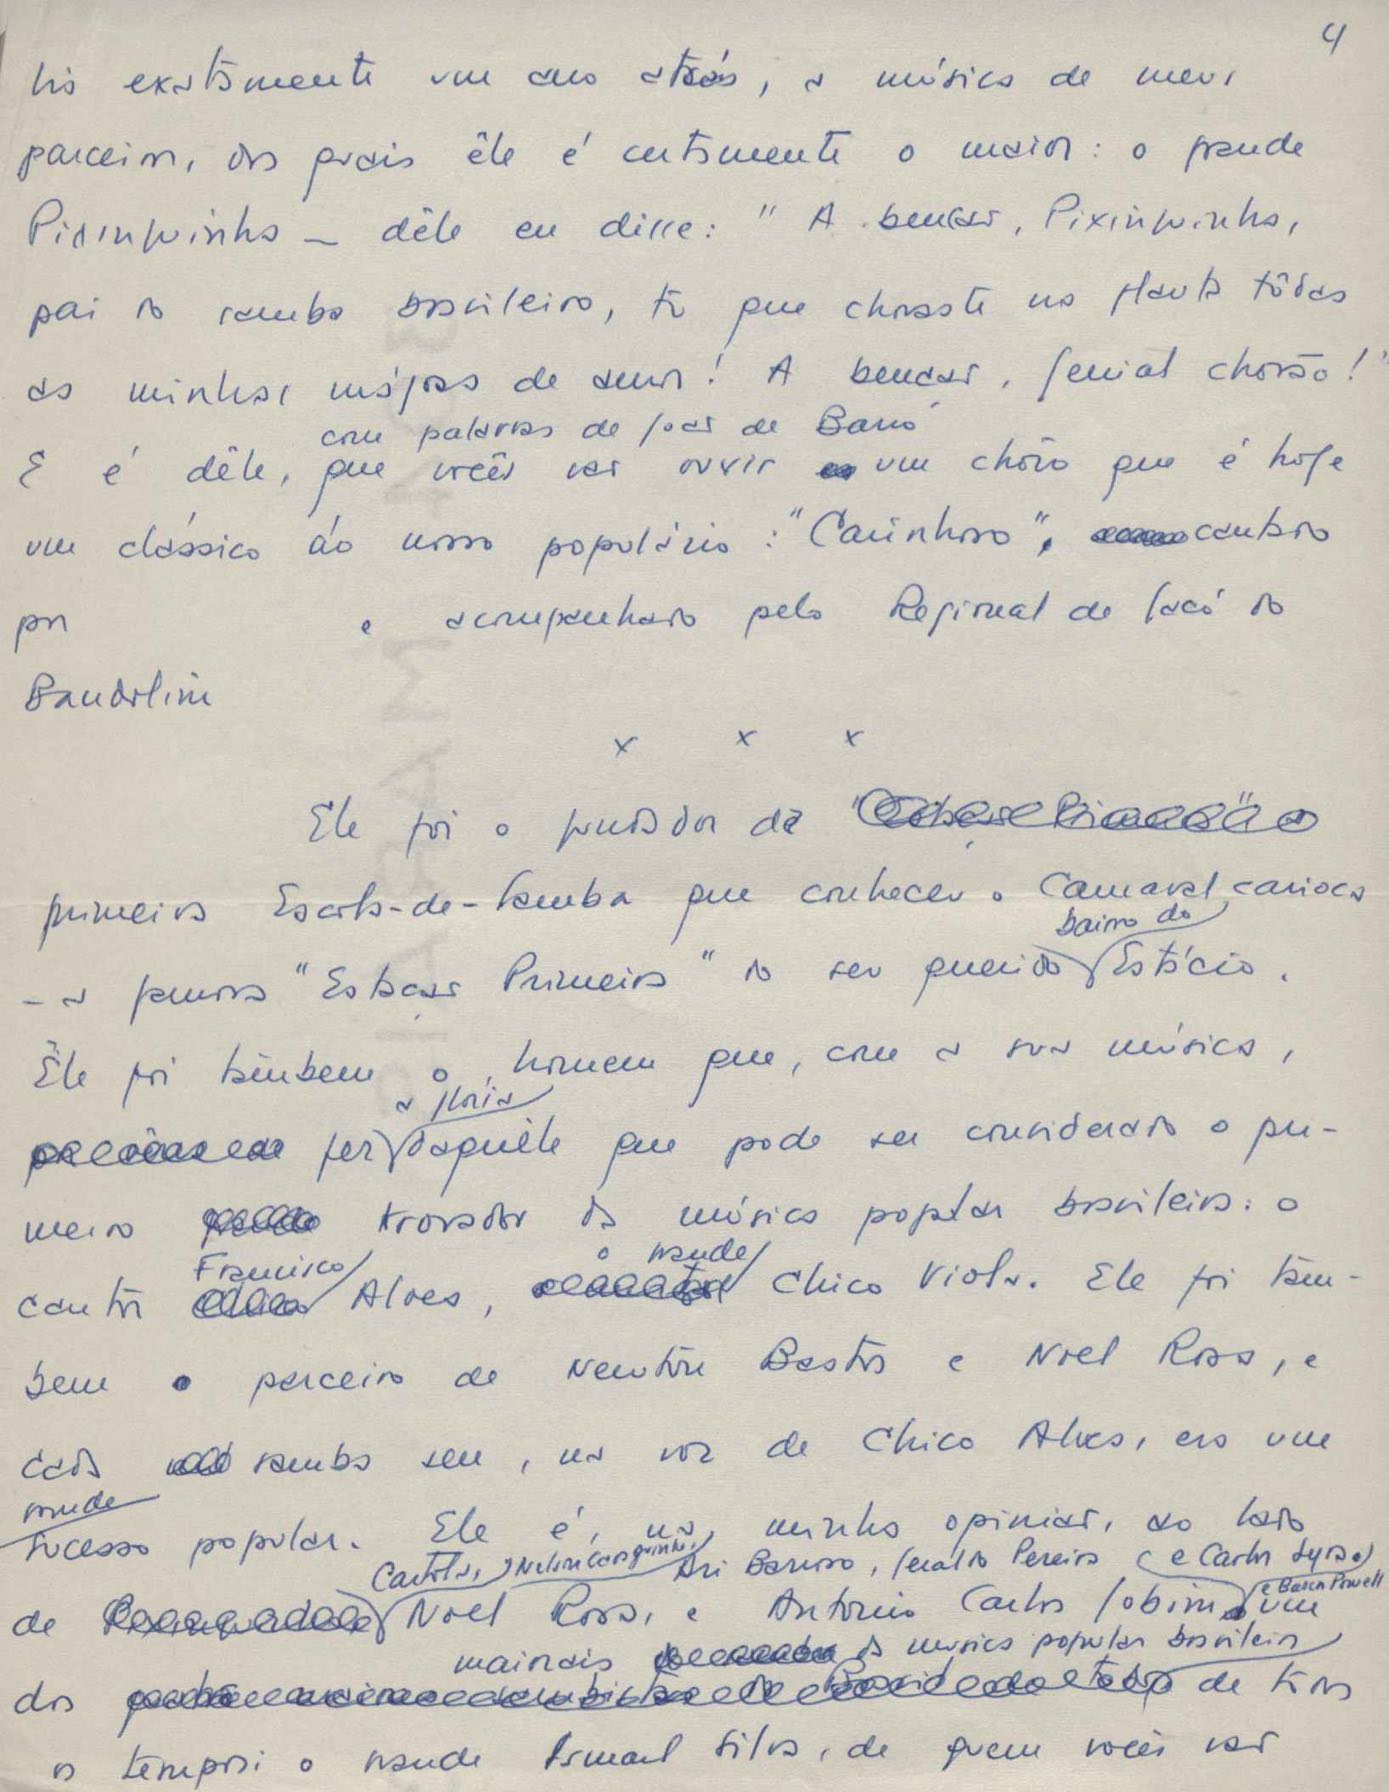 4
há exatamente um ano atrás, a música de meus
parceiros, dos quais êle é certamente o maior: o grande
Pixinguinha — dêle eu disse: "A benção, Pixinguinha,
pai do samba brasileiro, tu que choraste na flauta tôdas
as minhas mágoas de amor! A benção, genial chorão!"
com palavras de João de Barro
E é dêle, que vocês vão ouvir um chôro que é hoje
um clássico do nosso populário: "Carinhoso", cantado
por e acompanhado pelo Regional de Jacó do
Bandolim
x x x
Ele foi o fundador da
primeira Escola-de-Samba que conheceu o Carnaval carioca
bairro do
- a famosa "Estação Primeira" do seu querido Estácio.
Êle foi tambem o homem que, com a sua música,
a glória
fez daquêle que pode ser considerado o pri-
meiro trovador da música popular brasileira: o
Francisco o grande
cantor Alves, Chico Viola. Ele foi tam-
bem o parceiro de Newton Bastos e Noel Rosa, e
cada samba seu, na voz de Chico Alves, era um
grande
sucesso popular. Ele é, na minha opinião, ao lado
Cartola, Nelson Cavaquinho, Ari Barroso, Geraldo Pereira (e Carlos Lyra)
de Noel Rosa, e Antonio Carlos Jobim e Baden Powell um
maiorais da música popular brasileira
dos de todos
os tempos: o grande Ismael Silva, de quem vocês vão